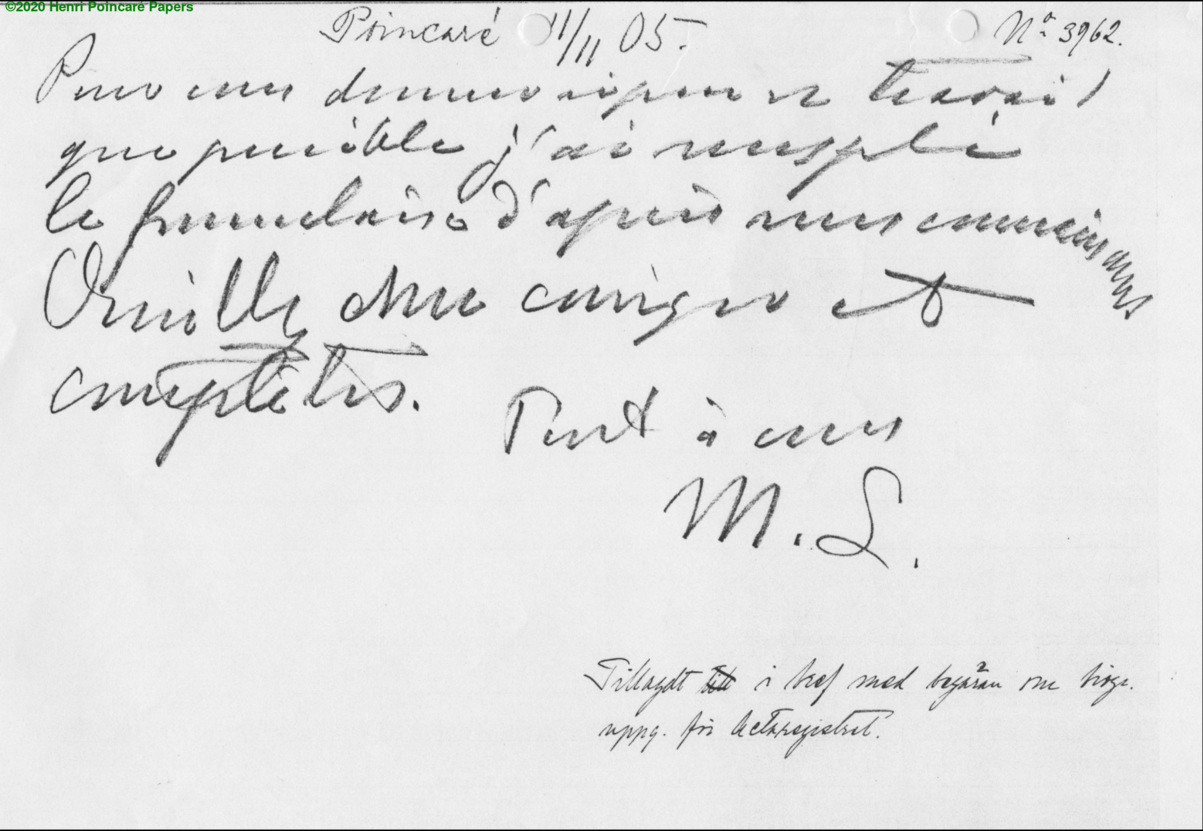 ©2020 Henri Poincaré Papers
Poincaré 11/11 05. Nº 3962.
Pour vous donner si peu de travail
que possible j'ai rempli
le formulaire d'après mes connaissances
Veuillez donc corriger et
compléter.
Tout à vous
M. L.
Tillagdt till i bref med begäran om biogr.
uppg. för Actaregistret.